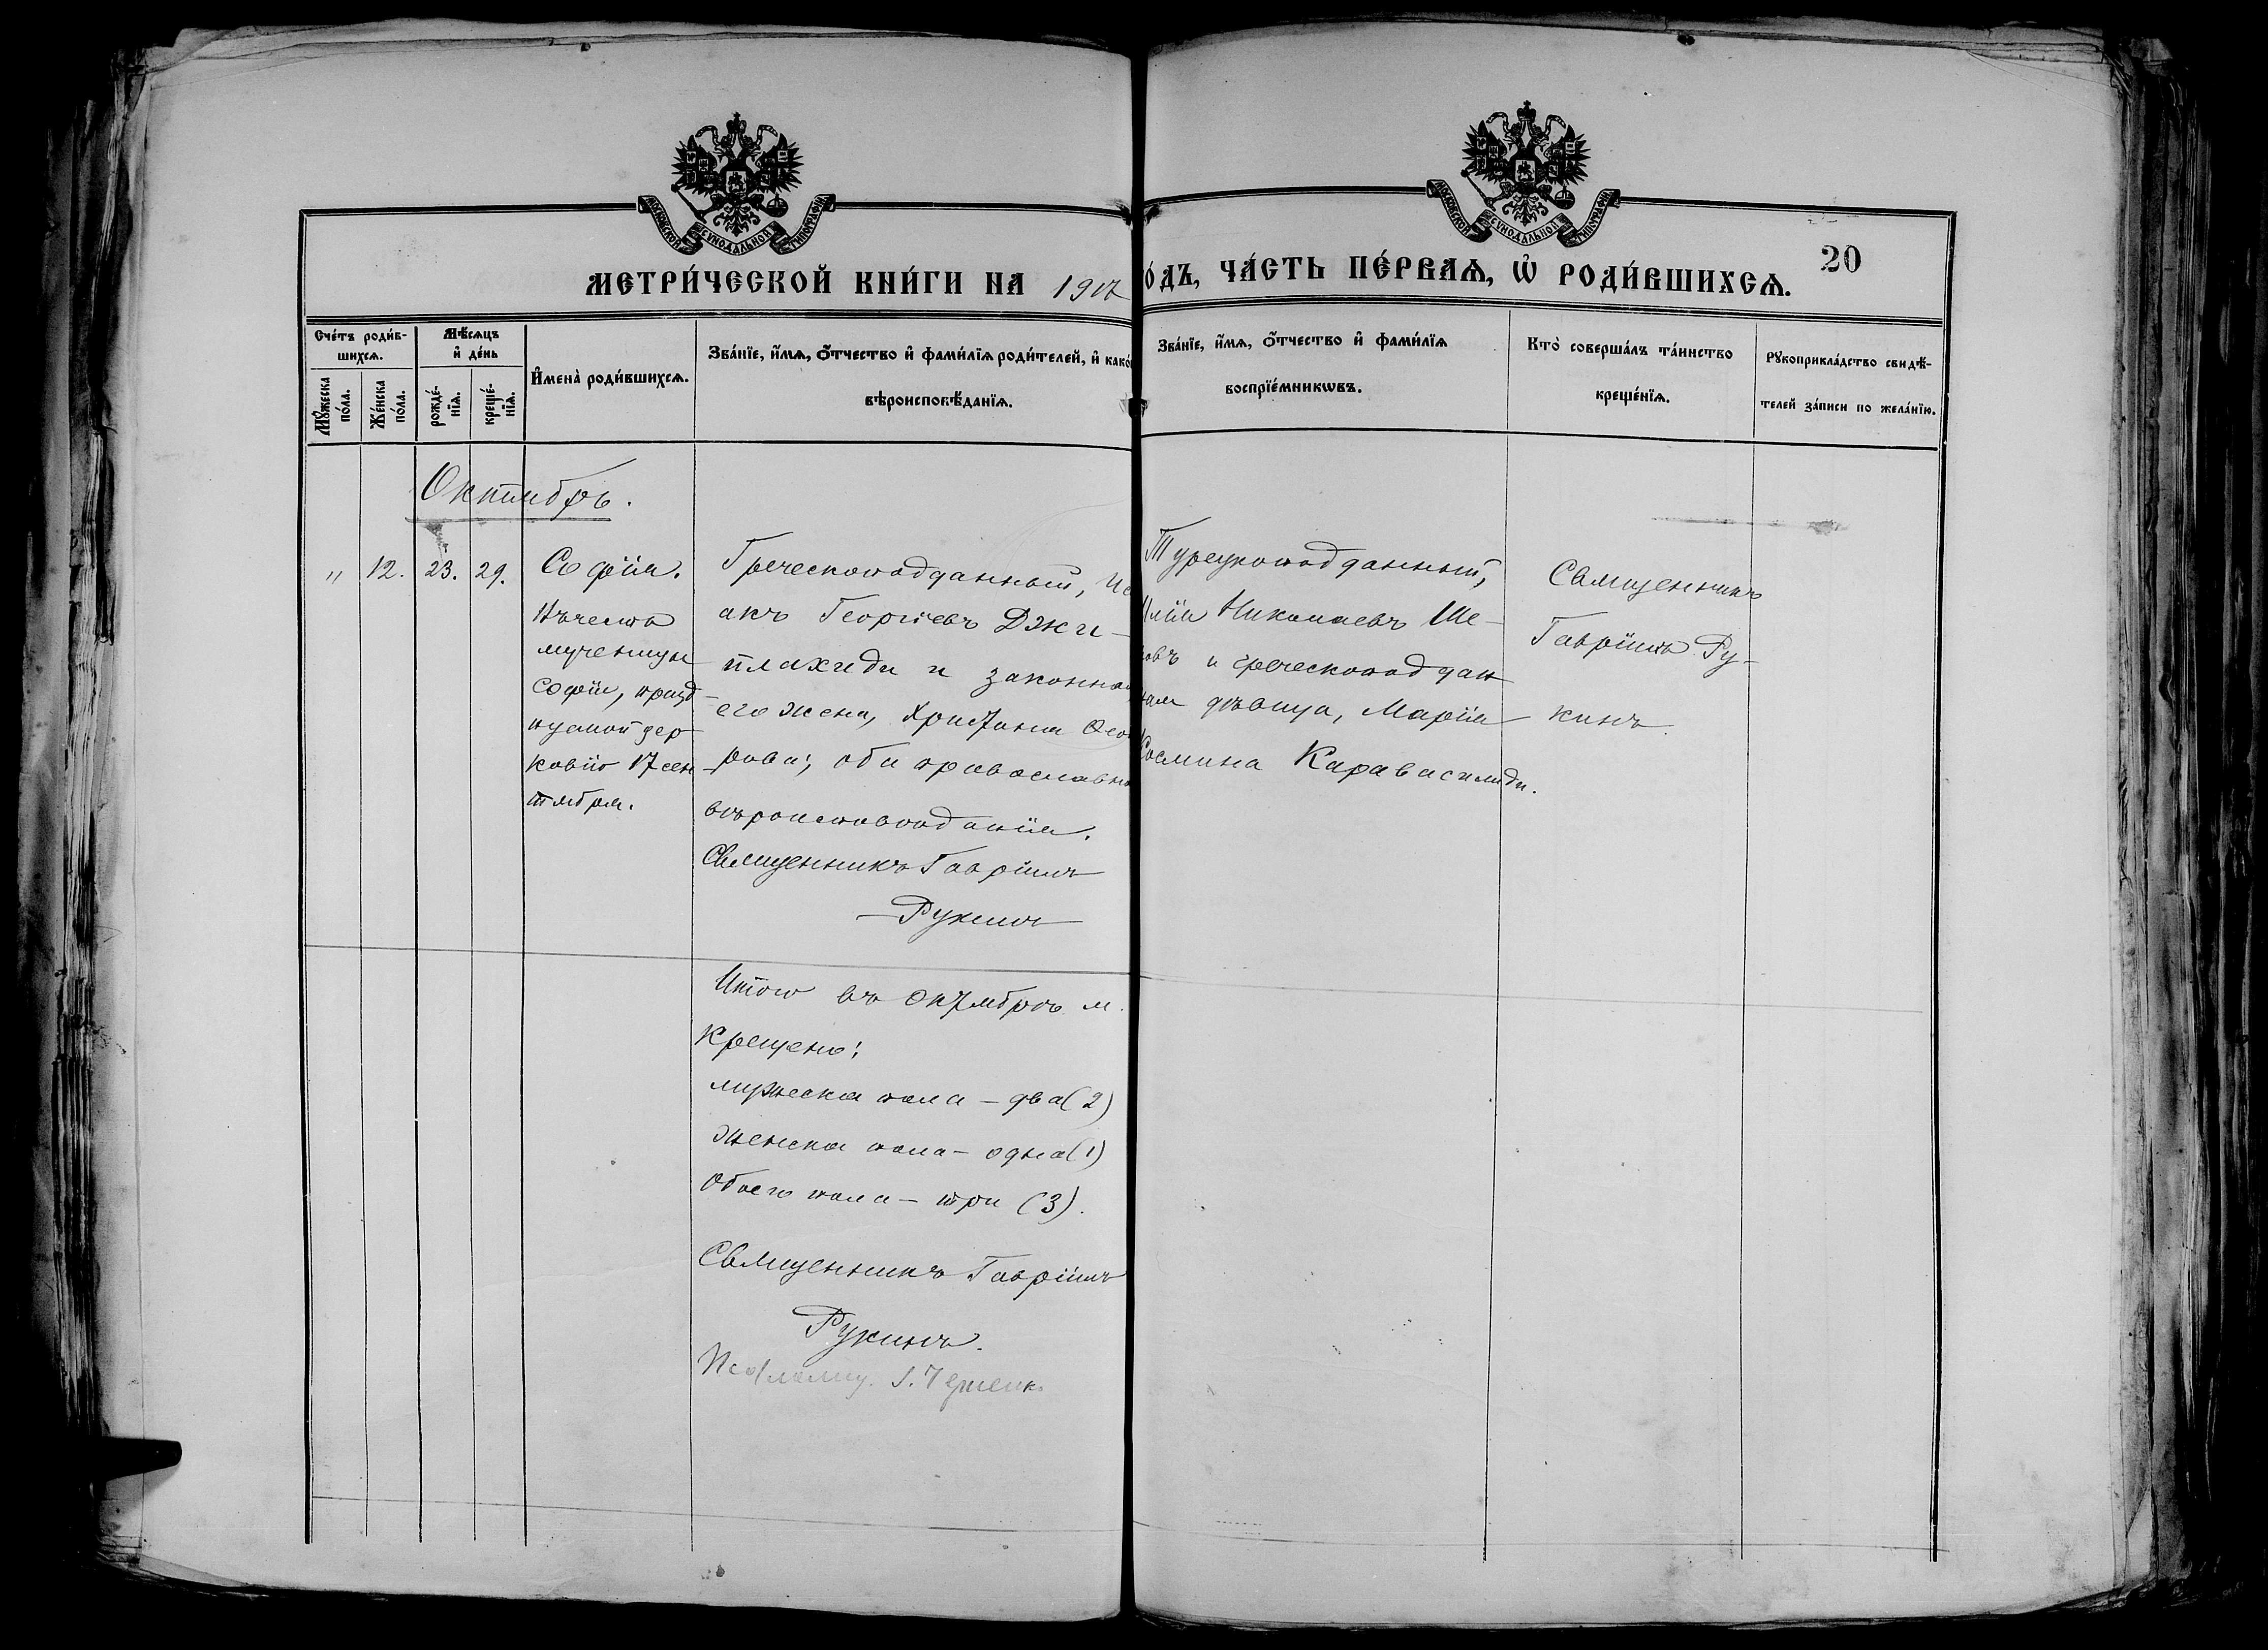 МОСКОВСКОЙ СУНОДАЛЬНОЙ ТИПОГРАФІИ
МОСКОВСКОЙ СУНОДАЛЬНОЙ ТИПОГРАФІИ
20
МЕТРИ́ЧЕСКОЙ КНИ́ГИ НА 1917
О́ДЪ, ЧА́СТЬ ПЕ́РВАѦ, Ѡ҆ РОДИ́ВШИХСѦ.
Сче́тъ роди́в-
шихсѧ.
Мꙋ́жеска по́ла.
Же́нска по́ла.
Мѣ́сѧцъ
и҆ де́нь
рожде́-
нїѧ.
креще́-
нїѧ.
И҆мена̀ роди́вшихсѧ.
Зва́нїе, и҆́мѧ, ѻ҆́тчество и҆ фами́лїѧ роди́телей, и҆ како́
вѣроисповѣ́данїѧ.
Зва́нїе, и҆́мѧ, ѻ҆́тчество и҆ фами́лїѧ
воспрїе́мникѡвъ.
Кто̀ соверша́лъ та́инство
креще́нїѧ.
Рꙋкоприкла́дство свидѣ́-
телей за́писи по жела́нїю.
Октябрь.
" 12. 23. 29.
Софія.
Въ честь
мученицы
Софіи, празд-
нуемой цер-
ковію 17 сен-
тября.
Греческоподданный, Иса
акъ Георгіевъ Джи-
плахиди и законная
его жена, Христина Ѳеодо
рова; оба православна
вѣроисповѣданія.
Священникъ Гавріилъ
Рукинъ
Турецкоподданный,
Илія Николаевъ Ше-
ковъ и греческоподдан
ная дѣвица, Марія
Космина Каравасилиди.
Священникъ
Гавріилъ Ру-
кинъ.
Итого въ октябрѣ м.
крещено:
мужеска пола – два (2)
женска пола – одна (1)
Обоего пола – три (3).
Священникъ Гавріилъ
Рукинъ.
Псаломщ.